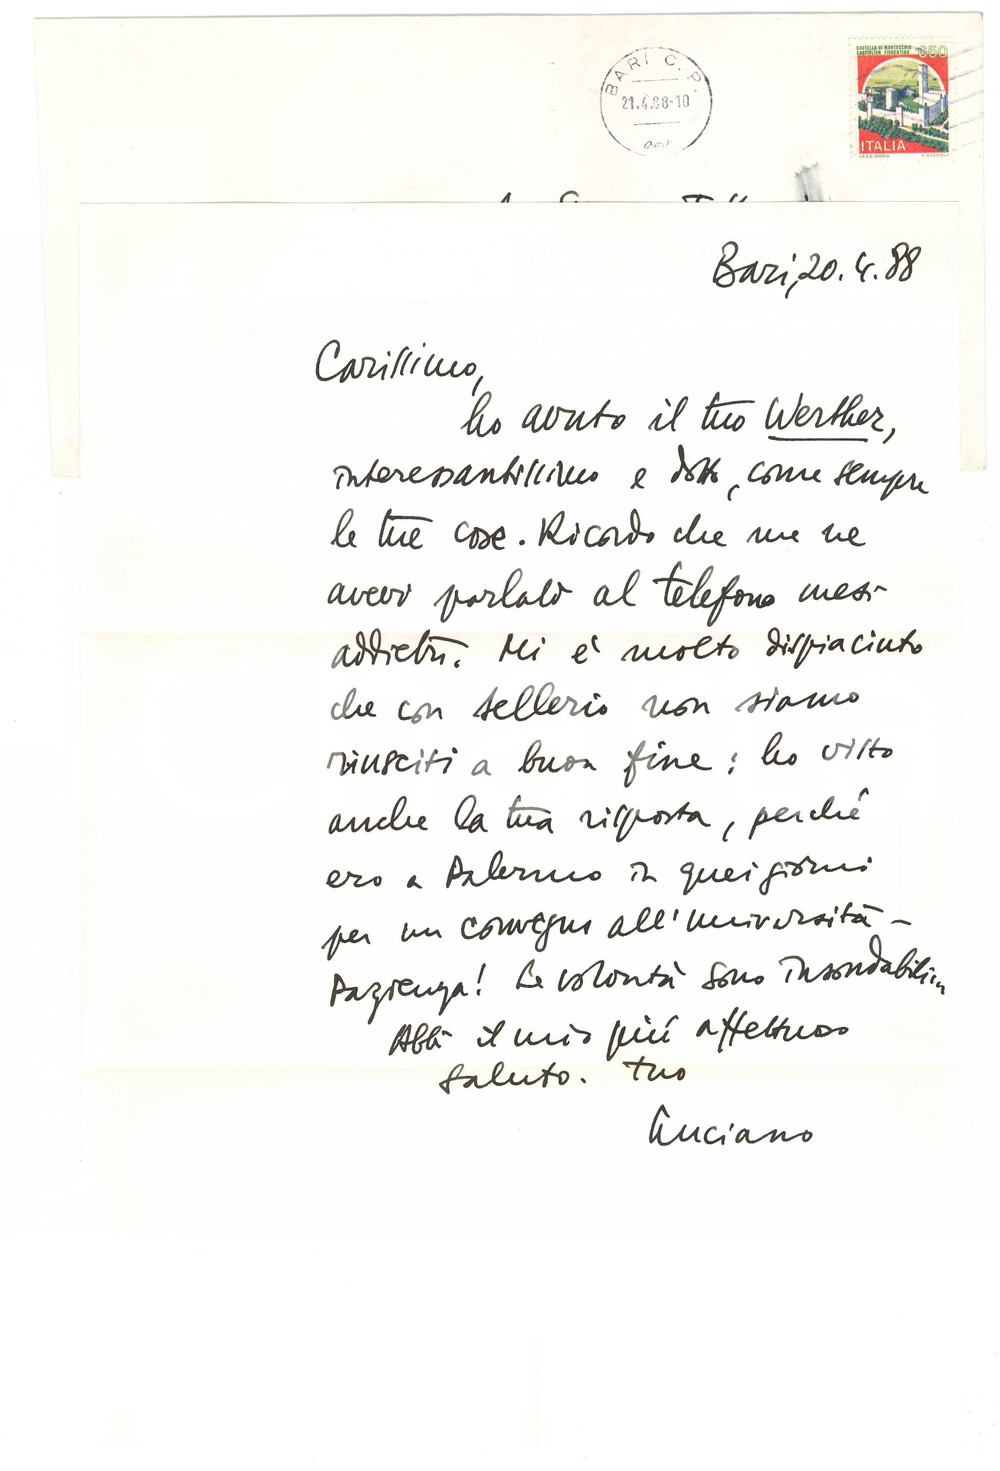 BARI C.P.
21.4.88-10
CASTELLO DI MONTECCHIO
CASTIGLION FIORENTINO
650
ITALIA
Bari, 20.4.88
Carissimo,
ho avuto il tuo Werther,
interessantissimo e dotto, come sempre
le tue cose. Ricordo che me ne
avevi parlato al telefono mesi
addietro. Mi è molto dispiaciuto
che con Sellerio non siamo
riusciti a buon fine: ho visto
anche la tua risposta, perché
ero a Palermo in quei giorni
per un convegno all'università –
Pazienza! Le volontà sono insondabili.
Abbi il mio più affettuoso
saluto. Tuo
Luciano